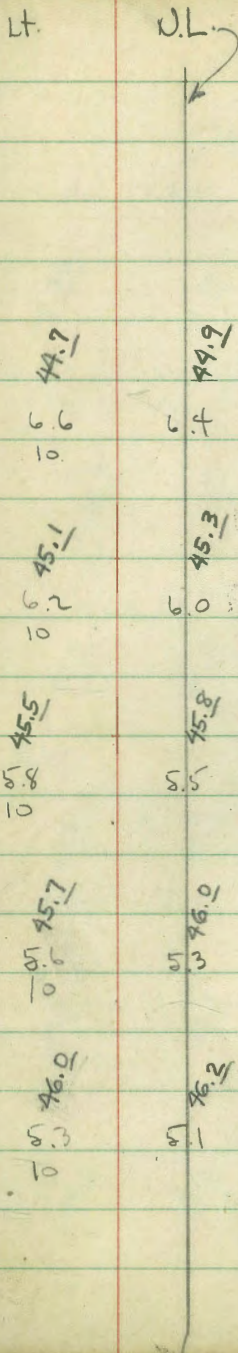 Lt. N.L.
44.7 44.9
6.6 6.4
10
45.1 45.3
6.2 6.0
10
45.5 45.8
5.8 5.5
10
45.7 46.0
5.6 5.3
10
46.0 46.2
5.3 5.1
10